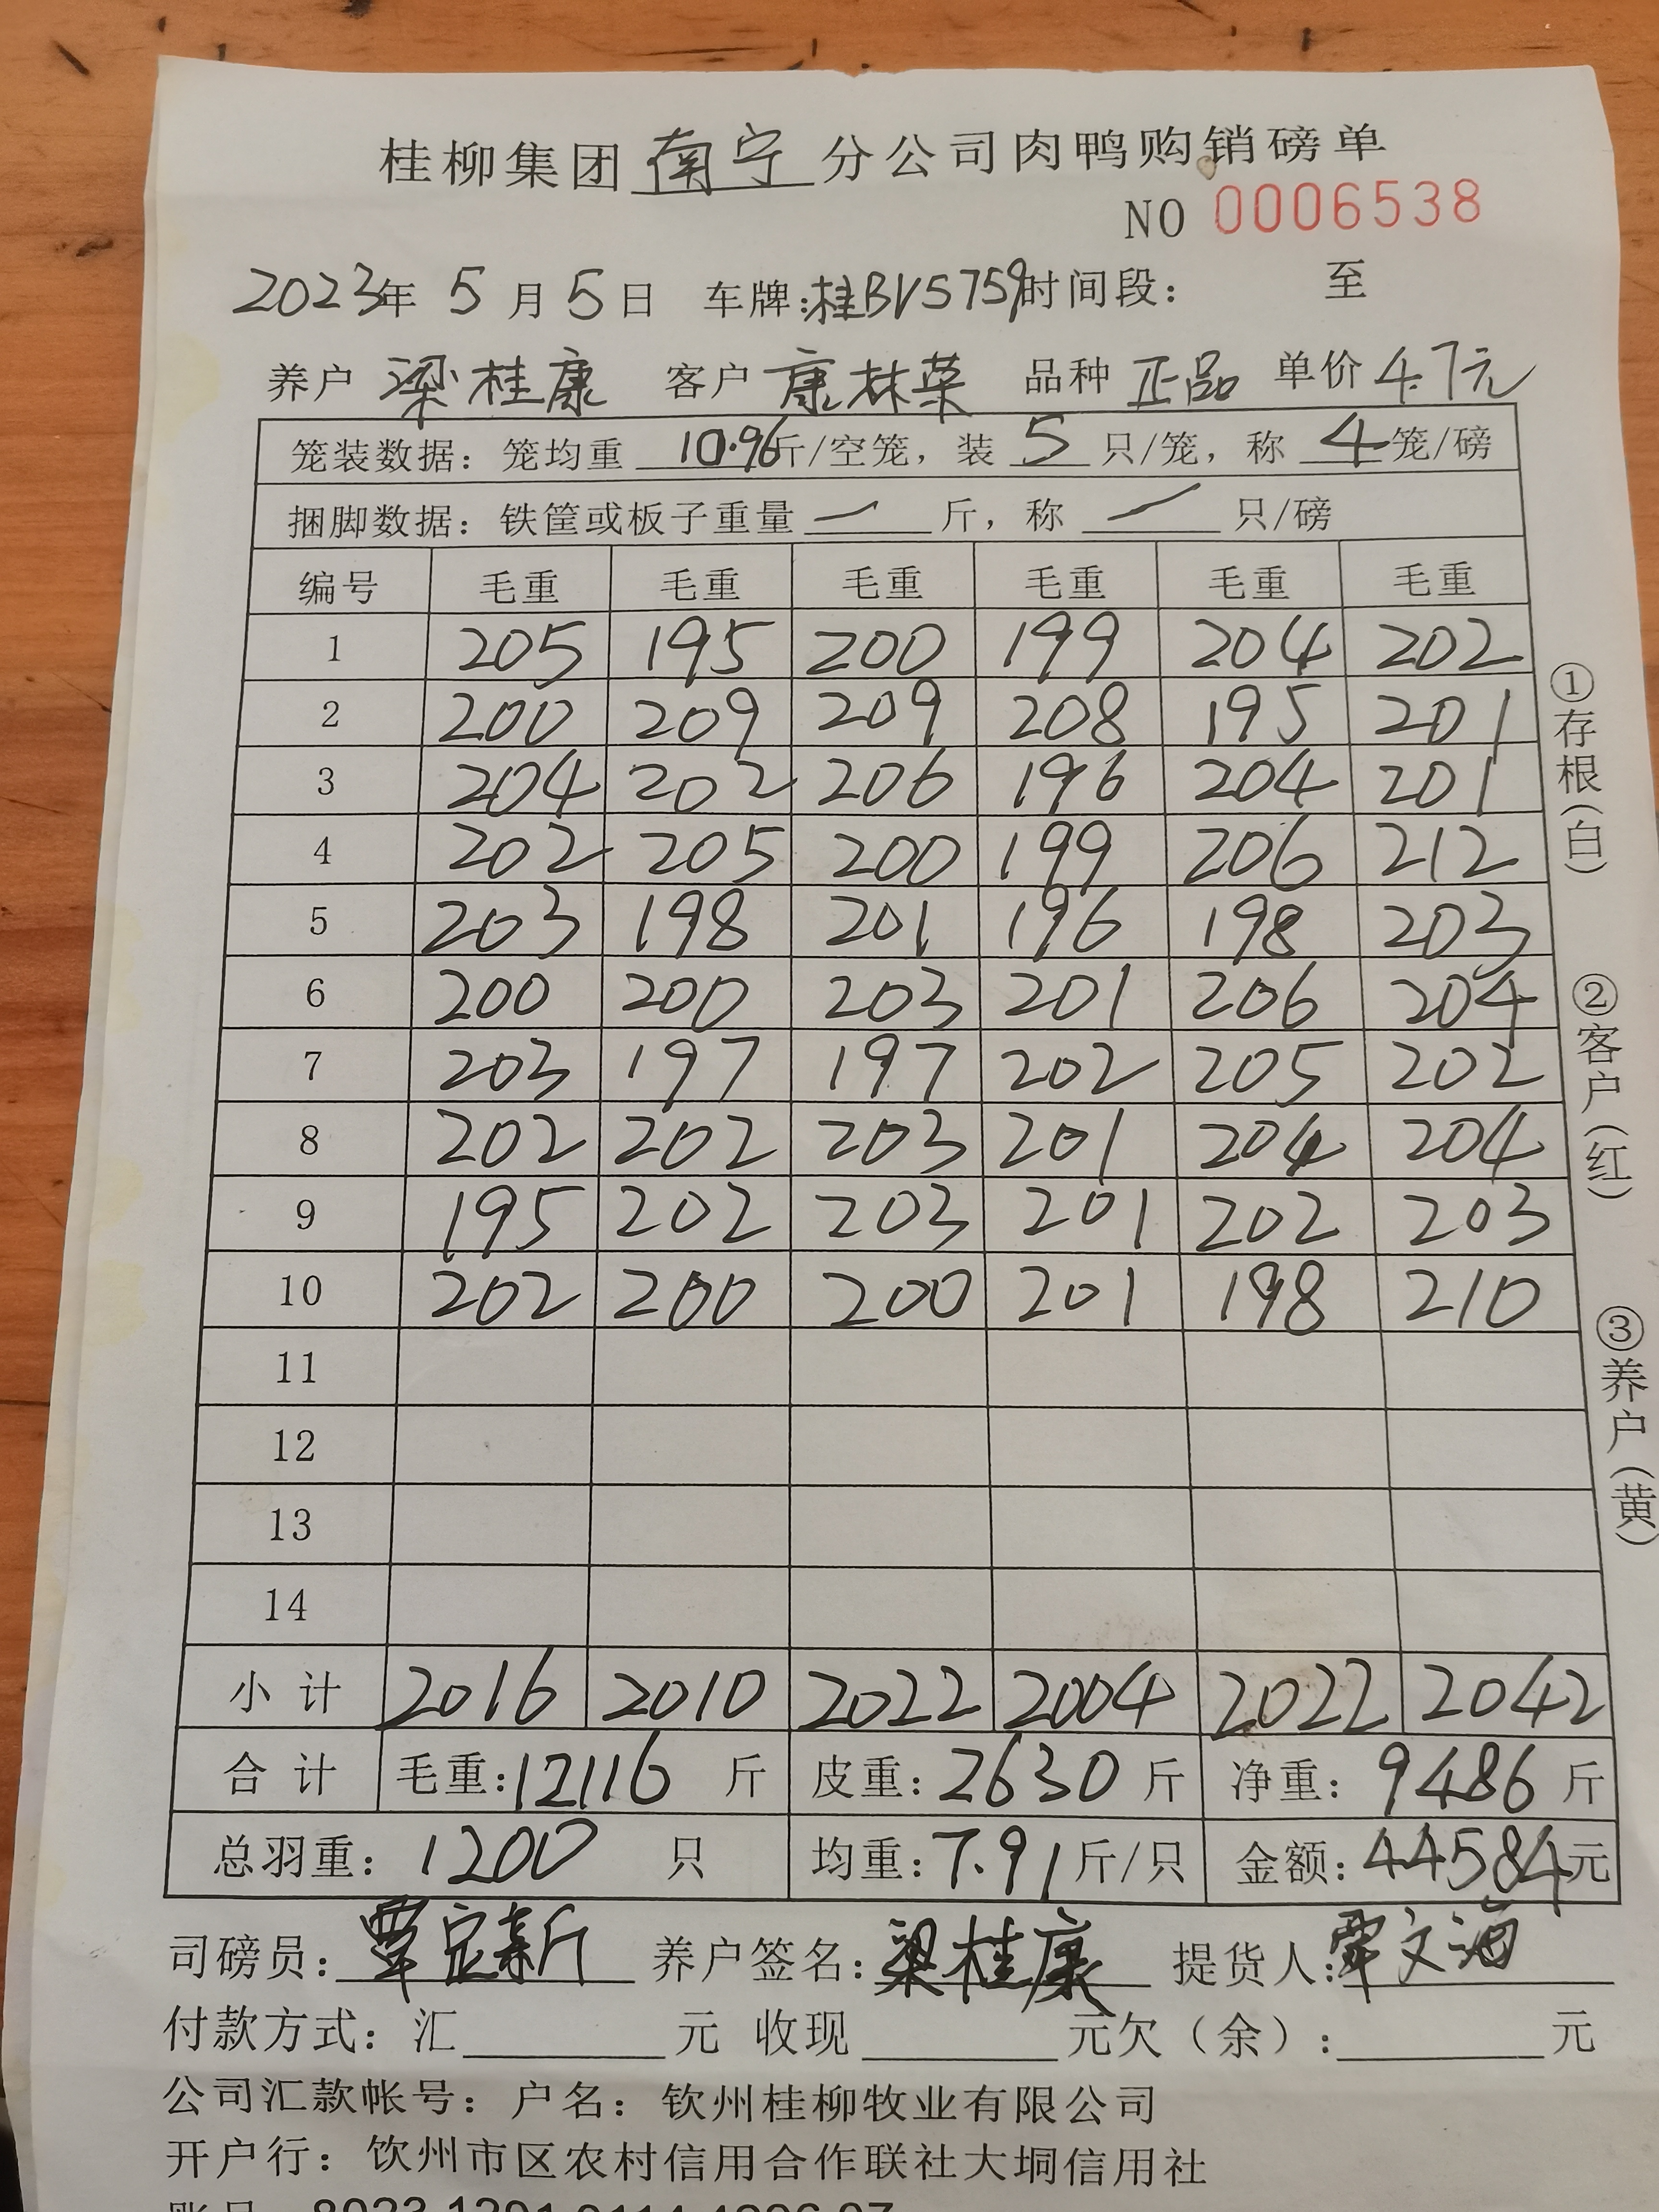 桂柳集团南宁分公司肉鸭购销磅单
NO 0006538
2023年 5月5日 车牌:桂BV5759时间段: 至
养户 梁桂康 客户 康林荣 品种 正品 单价 4.7元
笼装数据: 笼均重 10.96斤/空笼, 装 5 只/笼, 称 4 笼/磅
捆脚数据: 铁筐或板子重量 一 斤, 称 一 只/磅
编号 毛重 毛重 毛重 毛重 毛重 毛重
1 205 195 200 199 204 202
2 200 209 209 208 195 201
3 204 202 206 196 204 201
4 202 205 200 199 206 212
5 203 198 201 196 198 203
6 200 200 203 201 206 204
7 203 197 197 202 205 202
8 202 202 203 201 204 204
9 195 202 203 201 202 203
10 202 200 200 201 198 210
11
12
13
14
小计 2016 2010 2022 2004 2022 2042
合计 毛重:12116 斤 皮重:2630 斤 净重: 9486 斤
总羽重: 1200 只 均重:7.91斤/只 金额:44584元
司磅员: 覃定新 养户签名:梁桂康 提货人:覃文海
付款方式: 汇 元 收现 元欠(余): 元
公司汇款帐号: 户名: 钦州桂柳牧业有限公司
开户行: 饮州市区农村信用合作联社大垌信用社
①存根(白)
②客户(红)
③养户(黄)